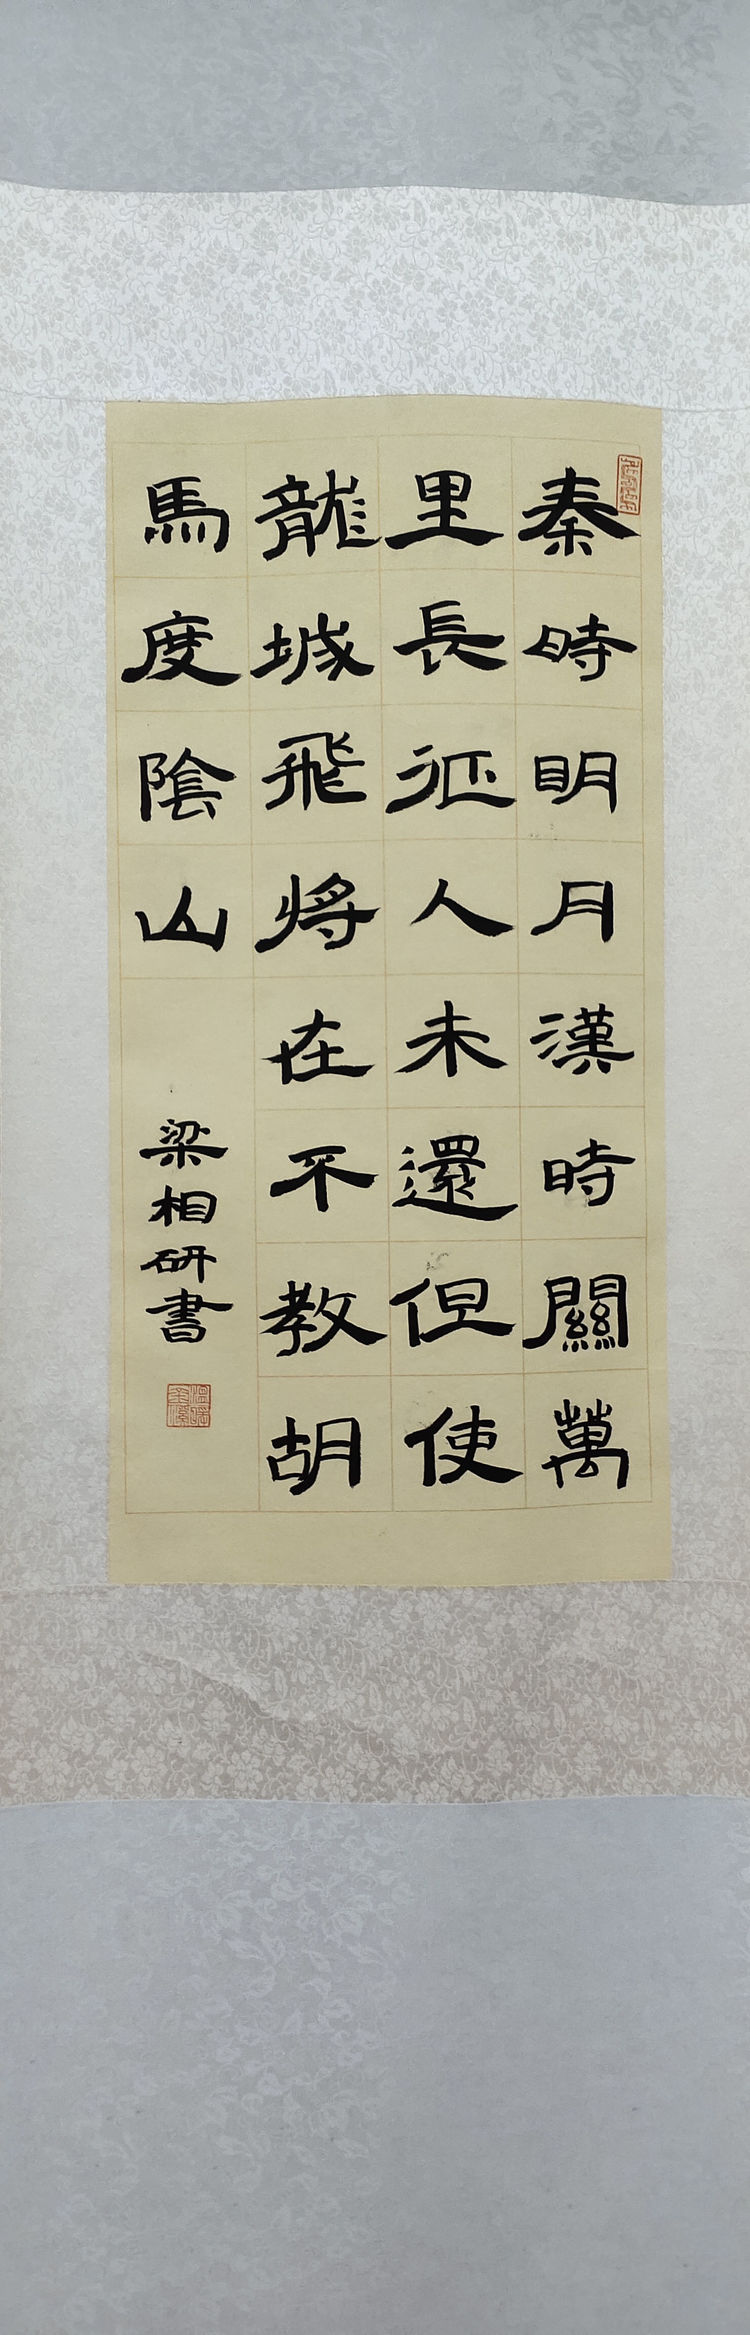 秦時明月漢時關萬
里長征人未還但使
龍城飛將在不教胡
馬度陰山
梁相研書